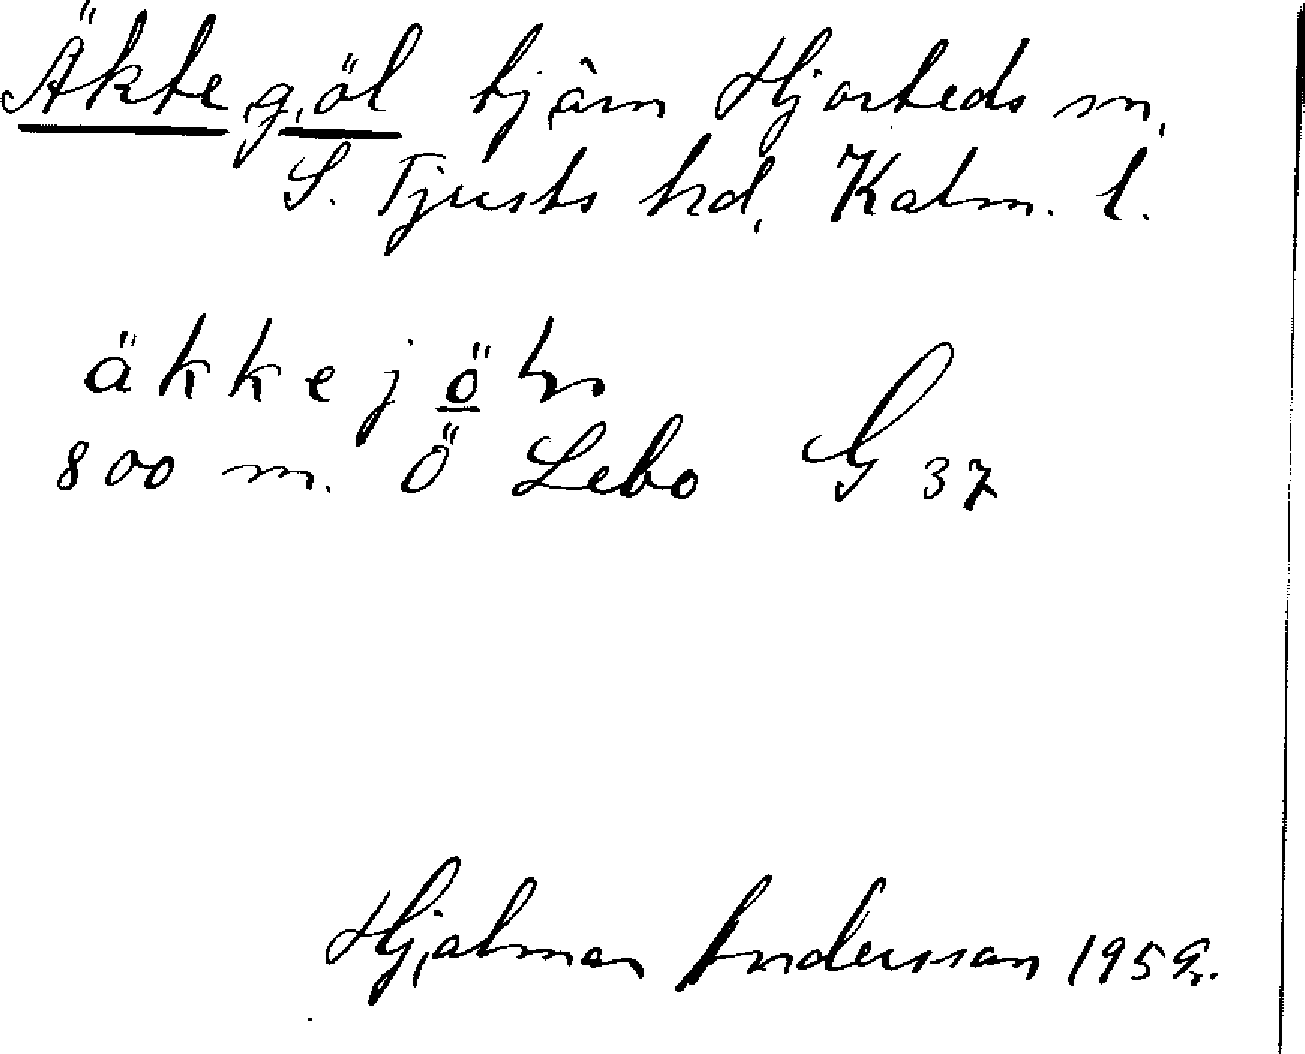 Äktegöl tjärn Hjorteds sn.
S. Tjusts hd. Kalm. l.
äkkejöln
800 m. Ö Lebo G 37
Hjalmar Andersson 1959.